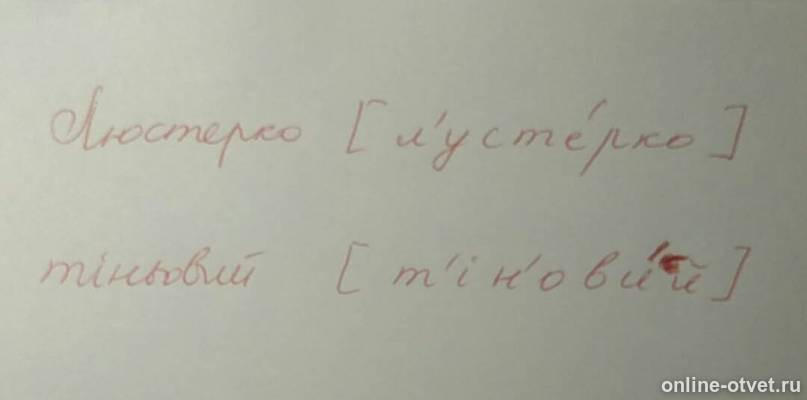 Люстерко [л'усте́рко]
тіньовий [т'ін'ови́й]
online-otvet.ru